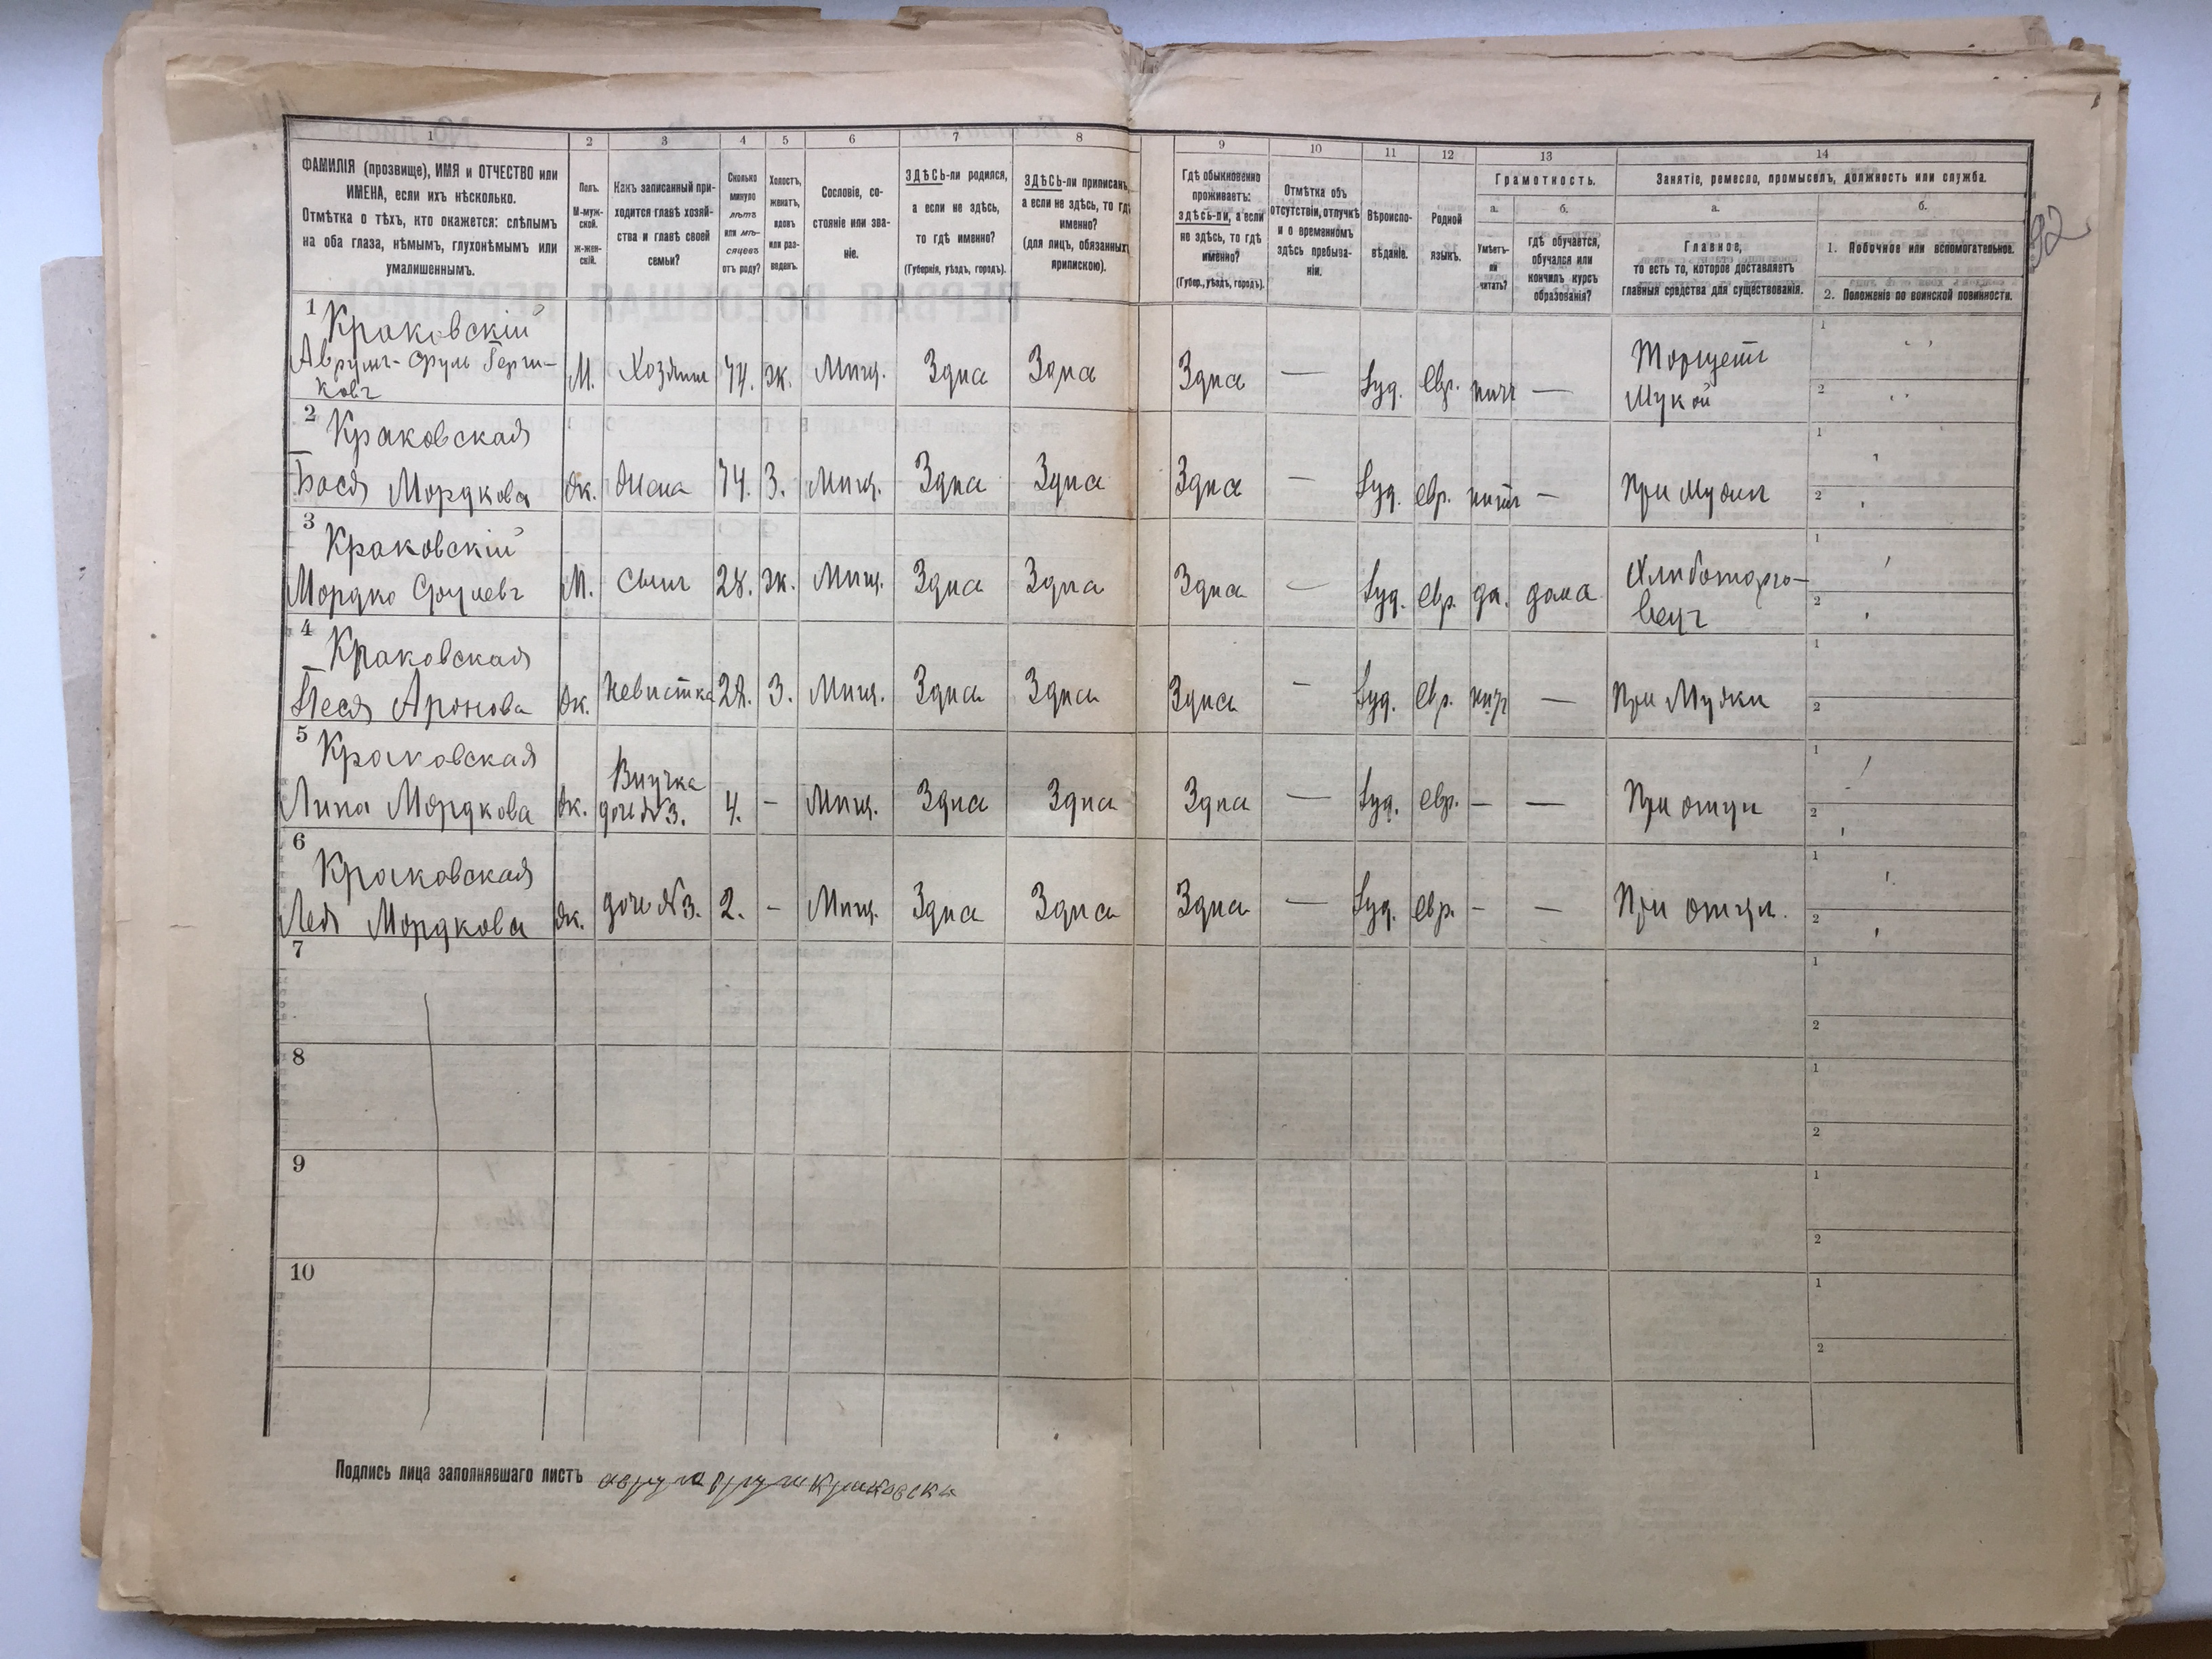 1 2 3 4 5 6 7 8 9 10 11 12 13 14
ФАМИЛІЯ (прозвище), ИМЯ и ОТЧЕСТВО или
ИМЕНА, если ихъ нѣсколько.
Отмѣтка о тѣхъ, кто окажется: слѣпымъ
на оба глаза, нѣмымъ, глухонѣмымъ или
умалишеннымъ.
Полъ.
М-муж-
ской.
Ж-жен-
скій.
Какъ записанный при-
ходится главѣ хозяй-
ства и главѣ своей
семьи?
Сколько
минуло
лѣтъ
или мѣ-
сяцевъ
отъ роду?
Холостъ,
женатъ,
вдовъ
или раз-
веденъ.
Сословіе, со-
стояніе или зва-
ніе.
ЗДѢСЬ-ли родился,
а если не здѣсь,
то гдѣ именно?
(Губернія, уѣздъ, городъ).
ЗДѢСЬ-ли приписанъ,
а если не здѣсь, то гдѣ
именно?
(для лицъ, обязанныхъ
припискою).
Гдѣ обыкновенно
проживаетъ:
ЗДѢСЬ-ЛИ, а если
не здѣсь, то гдѣ
именно?
(Губер., уѣздъ, городъ).
Отмѣтка объ
отсутствіи, отлучкѣ
и о временномъ
здѣсь пребыва-
ніи.
Вѣроиспо-
вѣданіе.
Родной
языкъ.
Грамотность.
а. б.
Умѣетъ-
ли
читать?
гдѣ обучается,
обучался или
кончилъ курсъ
образованія?
Занятіе, ремесло, промыселъ, должность или служба.
а. б.
Главное,
то есть то, которое доставляетъ
главныя средства для существованія.
1. Побочное или вспомогательное.
2. Положеніе по воинской повинности.
92
1 Краковскій
Аврумъ-Сруль
ковъ М. Хозяинъ 74. ж. Мищ. Здиа Здиа Здиа — Іуд. евр. нитъ — Торгуетъ
Мукой
1
2
2 Краковская
Бася Мордкова Ж. Жена 74. З. Мищ. Здиа Здиа Здиа — Іуд. евр. нитъ — При Мужи
1
2
3 Краковскій
Мордко Срулевъ М. Сынъ 28. ж. Мищ. Здиа Здиа Здиа — Іуд. евр. да. дома Хлиботорго-
вецъ
1
2
4 Краковская
Песя Аронова Ж. Невистка 28. З. Мищ. Здиа Здиа Здиа — Іуд. евр. нитъ — При Мужи
1
2
5 Краковская
Лина Мордкова Ж. Внучка
дочь №3. 4. — Мищ. Здиа Здиа Здиа — Іуд. евр. — — При отци
1
2
6 Краковская
Лея Мордкова Ж. дочь №3. 2. — Мищ. Здиа Здиа Здиа — Іуд. евр. — — При отци.
1
2
7
1
2
8
1
2
9
1
2
10
1
2
Подпись лица заполнявшаго листъ аврум срул Краковски